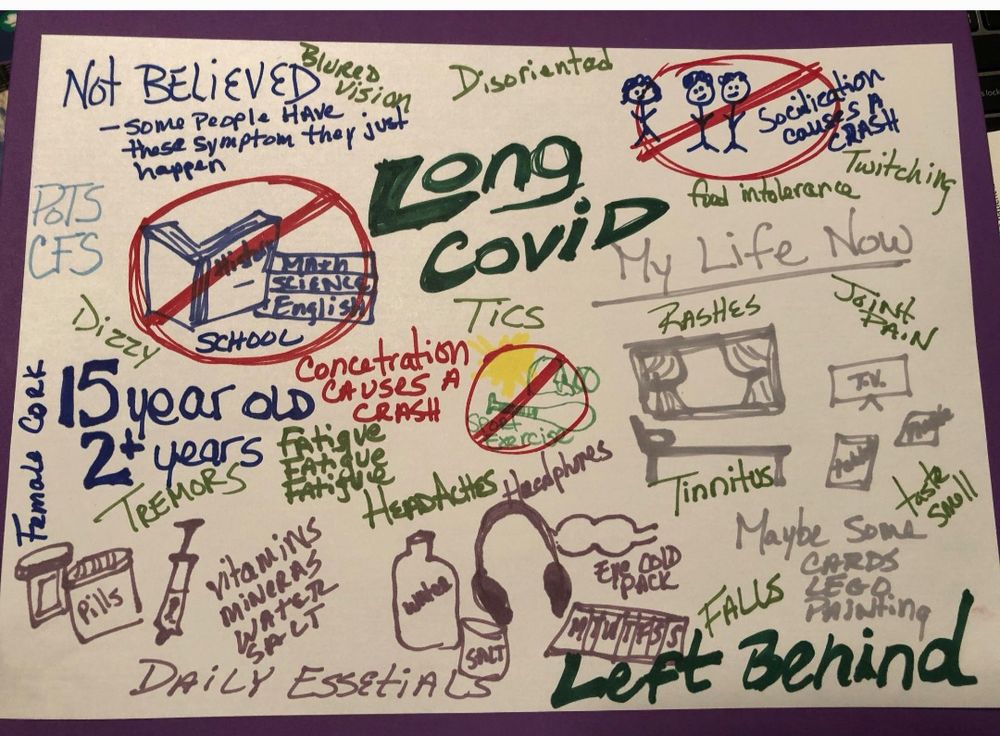 NOT BELIEVED
- Some People HAVE
these symptom they just
happen
Blured
vision
Disoriented
Socilication
causes A
CRASH
Twitching
food intolerance
Long
Covid
POTS
CFS
History
Math
SCIENCE
English
SCHOOL
My Life Now
Dizzy
TICS
RASHES
Joint
PAIN
Concetration
CAUSES A
CRASH
Sport
Exercise
T.V.
Female Cork
15 year old
2+ years
Fatigue
Fatigue
Fatigue
TREMORS
HEADACHES
Headphones
Tinnitus
taste
smell
Pills
Vitamins
Mineras
Water
SALT
Water
SALT
Eye COLD
PACK
M T W T F S S
Maybe Some
CARDS
LEGO
PAINTing
FALLS
DAILY ESSETIALS
Left Behind